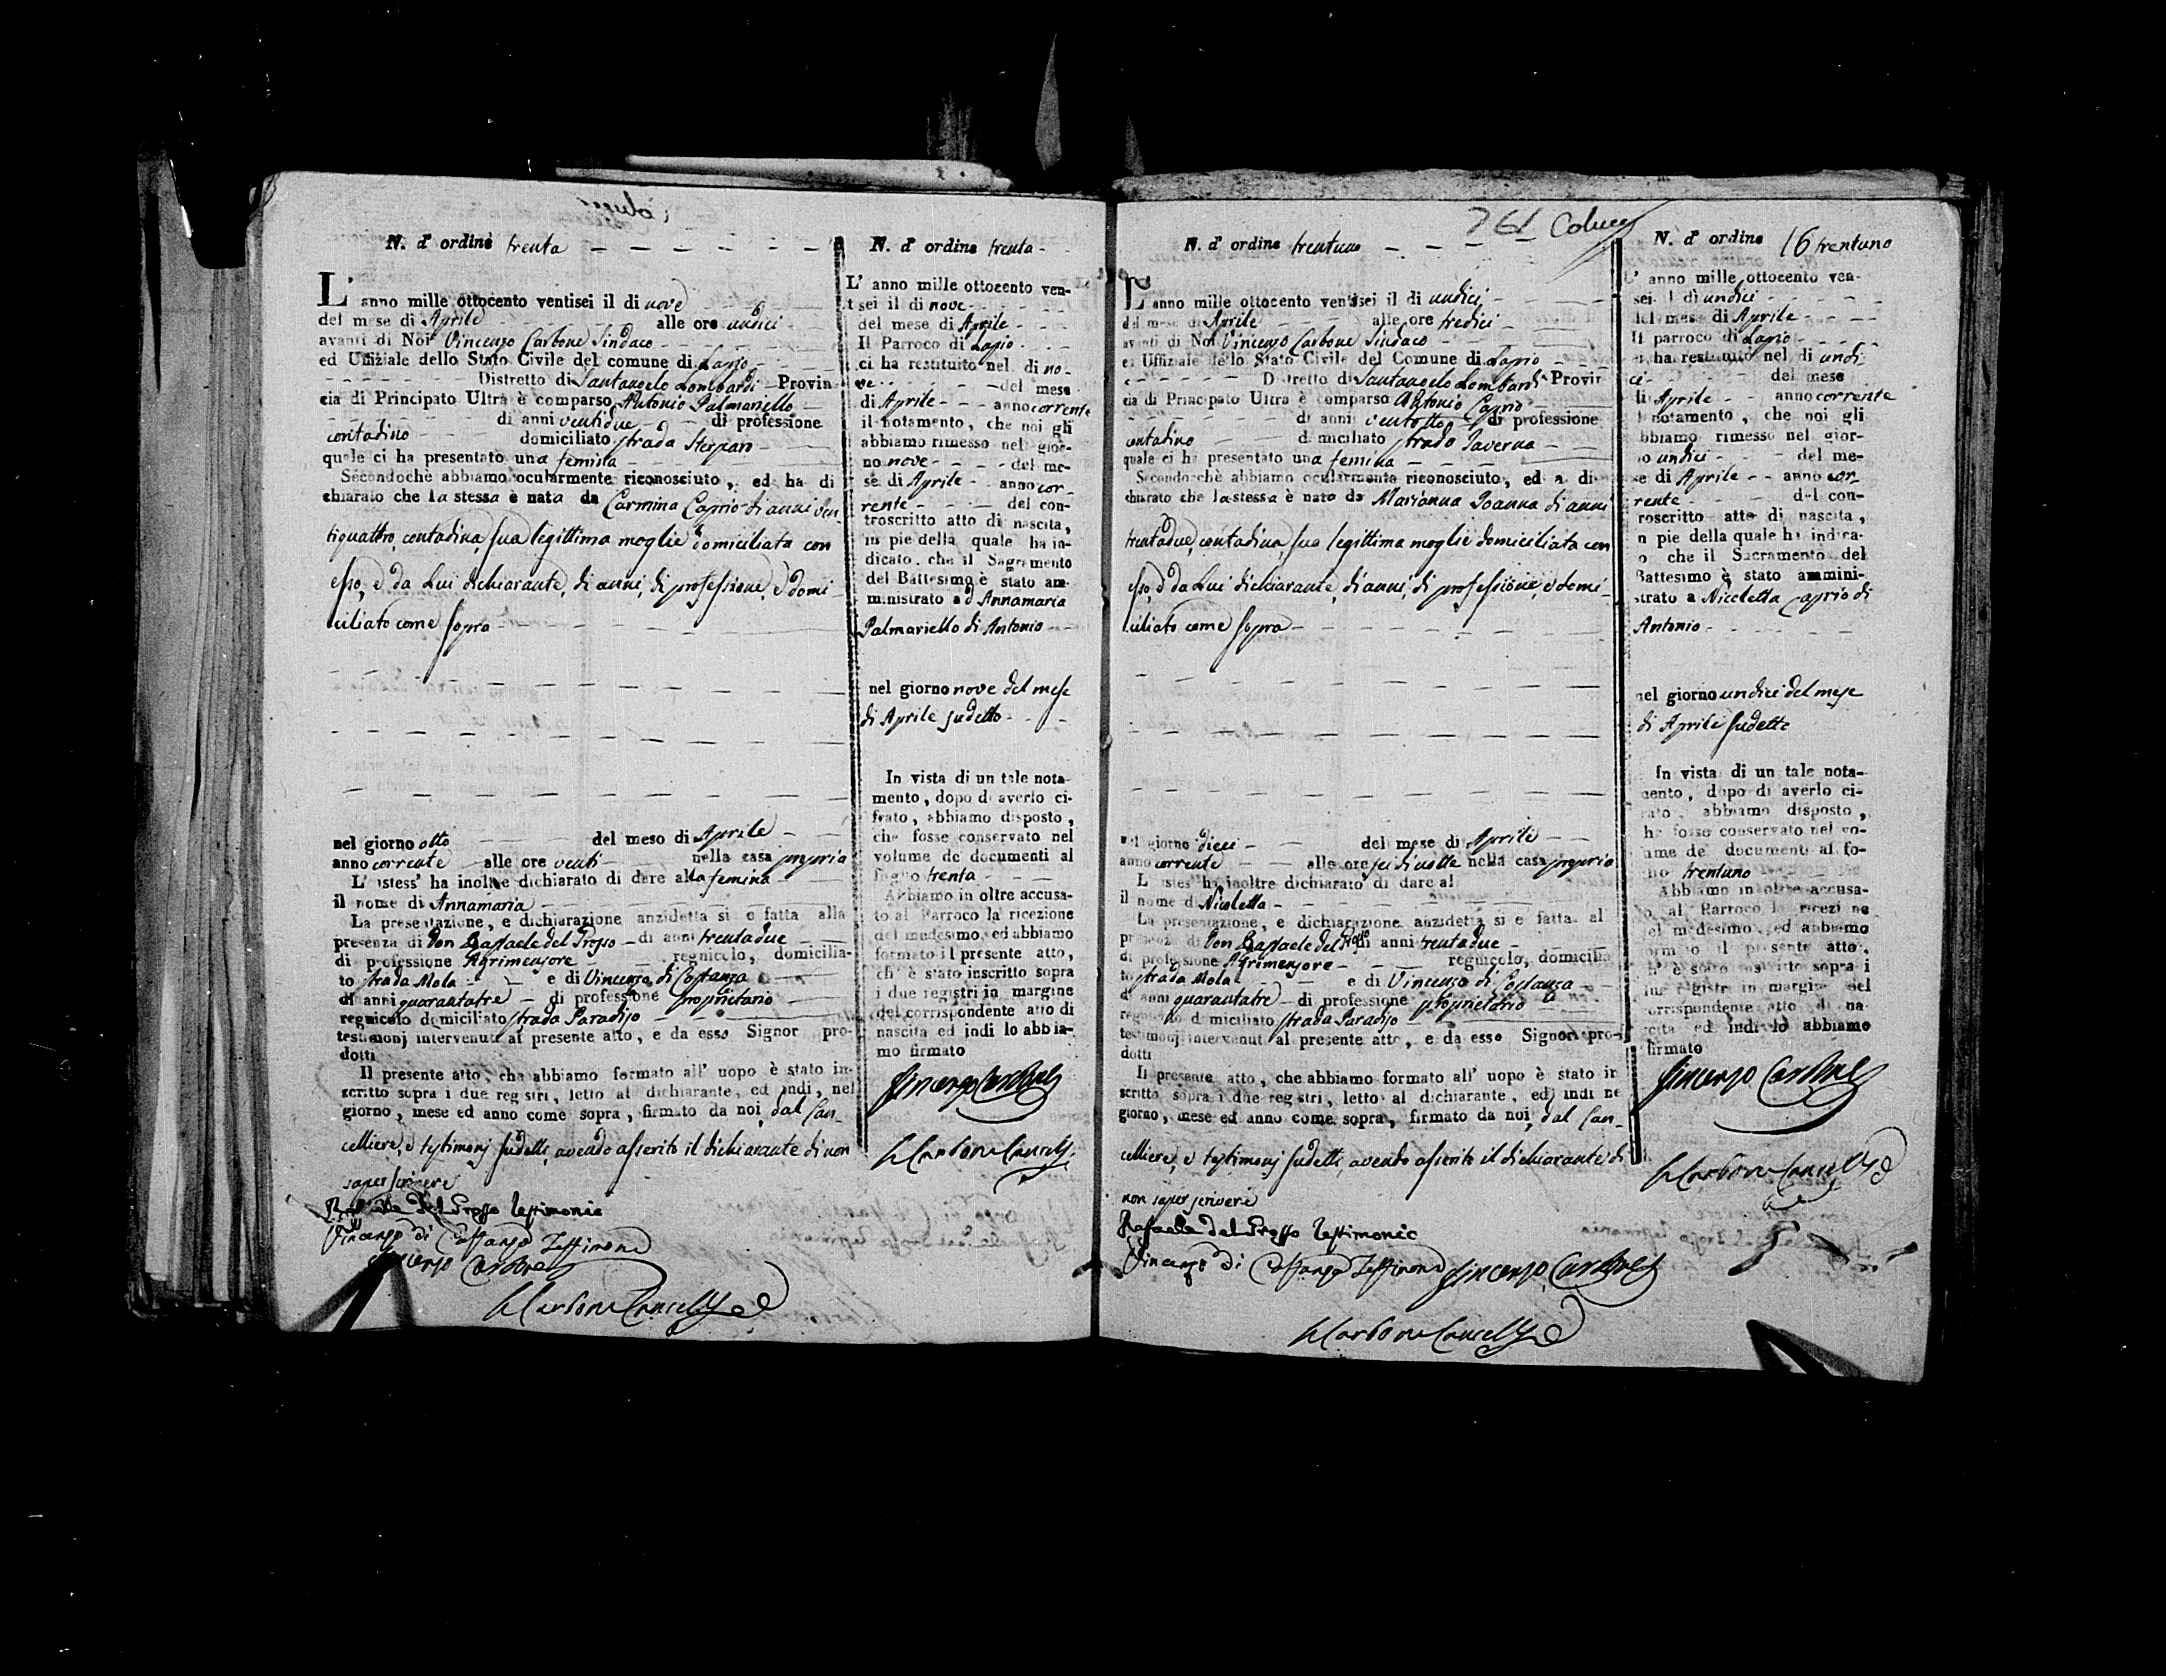 N. d' ordine trenta
L' anno mille ottocento ventisei il di nove
del mese di Aprile alle ore undici
avanti di Noi Vincenzo Carbone Sindaco
ed Uffiziale dello Stato Civile del comune di Lapio
Distretto di Santangelo Lombardi Provin
cia di Principato Ultra è comparso Antonio Palmariello
di anni ventidue di professione
contadino domiciliato strada Sterparo
quale ci ha presentato una femina
Secondochè abbiamo ocularmente riconosciuto, ed ha di
chiarato che la stessa è nata da Carmina Caprio di anni ven
tiquattro, contadina, sua legittima moglie domiciliata con
esso, e da Lui dichiarante, di anni, di professione, e domi
ciliato come sopra
nel giorno otto del mese di Aprile
anno corrente alle ore venti nella casa propria
L' istess' ha inoltre dichiarato di dare alla femina
il nome di Annamaria
La presentazione, e dichiarazione anzidetta si e fatta alla
presenza di Don Raffaele del Grosso di anni trentadue
di professione Agrimensore regnicolo, domicilia-
to strada Mola e di Vincenzo di Costanza
di anni quarantatre di professione proprietario
regnicolo domiciliato strada Paradiso
testimonj intervenuti al presente atto, e da esso Signor pro-
dotti
Il presente atto, che abbiamo formato all' uopo è stato in-
scritto sopra i due registri, letto al dichiarante, ed indi, nel
giorno, mese ed anno come sopra, firmato da noi, dal Can
celliere, e testimonj sudetti, avendo asserito il dichiarante di non
saper scrivere
Raffaele del Grosso testimonio
Vincenzo di Costanzo Testimone
Vincenzo Carbone
N. d' ordine trenta
L' anno mille ottocento ven-
tsei il di nove
del mese di Aprile
Il Parroco di Lapio
ci ha restituito nel di no-
ve del mese
di Aprile anno corrente
il notamento, che noi gli
abbiamo rimesso nel gior-
no nove del me-
se di Aprile anno cor-
rente del con-
troscritto atto di nascita,
in pie della quale ha in-
dicato che il Sagramento
del Battesimo è stato am-
ministrato ad Annamaria
Palmariello di Antonio
nel giorno nove del mese
di Aprile sudetto
In vista di un tale nota-
mento, dopo di averlo ci-
frato, abbiamo disposto,
che fosse conservato nel
volume de' documenti al
foglio trenta
Abbiamo in oltre accusa-
to al Parroco la ricezione
del medesimo, ed abbiamo
formato il presente atto,
ch' è stato inscritto sopra
i due registri in margine
del corrispondente atto di
nascita ed indi lo abbia-
mo firmato
Vincenzo Carbone
N. d' ordine trentuno
L' anno mille ottocento ventisei il di undici
del mese di Aprile alle ore tredici
avanti di Noi Vincenzo Carbone Sindaco
ed Uffiziale dello Stato Civile del Comune di Lapio
Distretto di Santangelo Lombardi Provin
cia di Principato Ultra è comparso Antonio Caprio
di anni ventotto di professione
contadino domiciliato strada Taverna
quale ci ha presentato una femina
Secondochè abbiamo ocularmente riconosciuto, ed a di
chiarato che la stessa è nata da Marianna Joanna di anni
trentadue, contadina, sua legittima moglie domiciliata con
esso, e da Lui dichiarante, di anni, di professione, e domi
ciliato come sopra
nel giorno dieci del mese di Aprile
anno corrente alle ore sei di notte nella casa propria
L' istes' ha inoltre dichiarato di dare al
il nome di Nicoletta
La presentazione, e dichiarazione anzidetta si e fatta al
presenza di Don Raffaele del Grosso di anni trentadue
di professione Agrimensore regnicolo, domicilia
to strada Mola e di Vincenzo di Costanza
di anni quarantatre di professione proprietario
regnicolo domiciliato strada Paradiso
testimonj intervenuti al presente atto, e da esso Signori pro-
dotti
Il presente atto, che abbiamo formato all' uopo è stato in
scritto sopra i due registri, letto al dichiarante, ed indi ne
giorno, mese ed anno come sopra, firmato da noi, dal Can
celliere, e testimonj sudetti, avendo asserito il dichiarante di
non saper scrivere
Raffaele del Grosso testimonio
Vincenzo di Costanzo Testimone Vincenzo Carbone
N. d' ordine 16 trentuno
L' anno mille ottocento ven-
sei il dì undici
del mese di Aprile
Il parroco di Lapio
ci ha restituito nel di undi
ci del mese
di Aprile anno corrente
l notamento, che noi gli
abbiamo rimesso nel gior-
no undici del me-
se di Aprile anno cor-
rente del con-
roscritto atto di nascita,
n pie della quale ha indica-
o che il Sacramento del
Battesimo è stato ammini-
strato a Nicoletta Caprio di
Antonio
nel giorno undici del mese
di Aprile sudetto
In vista di un tale nota-
mento, dopo di averlo ci-
rato, abbiamo disposto,
he fosse conservato nel vo-
ume de' documenti al fo-
lio trentuno
Abbiamo in oltre accusa-
o al Parroco la ricezi ne
el medesimo, ed abbiamo
ormato il presente atto,
h' è stato inscritto sopra i
due registri in margine del
orrispondente atto di na-
scita ed indi lo abbiamo
firmato
Vincenzo Carbone